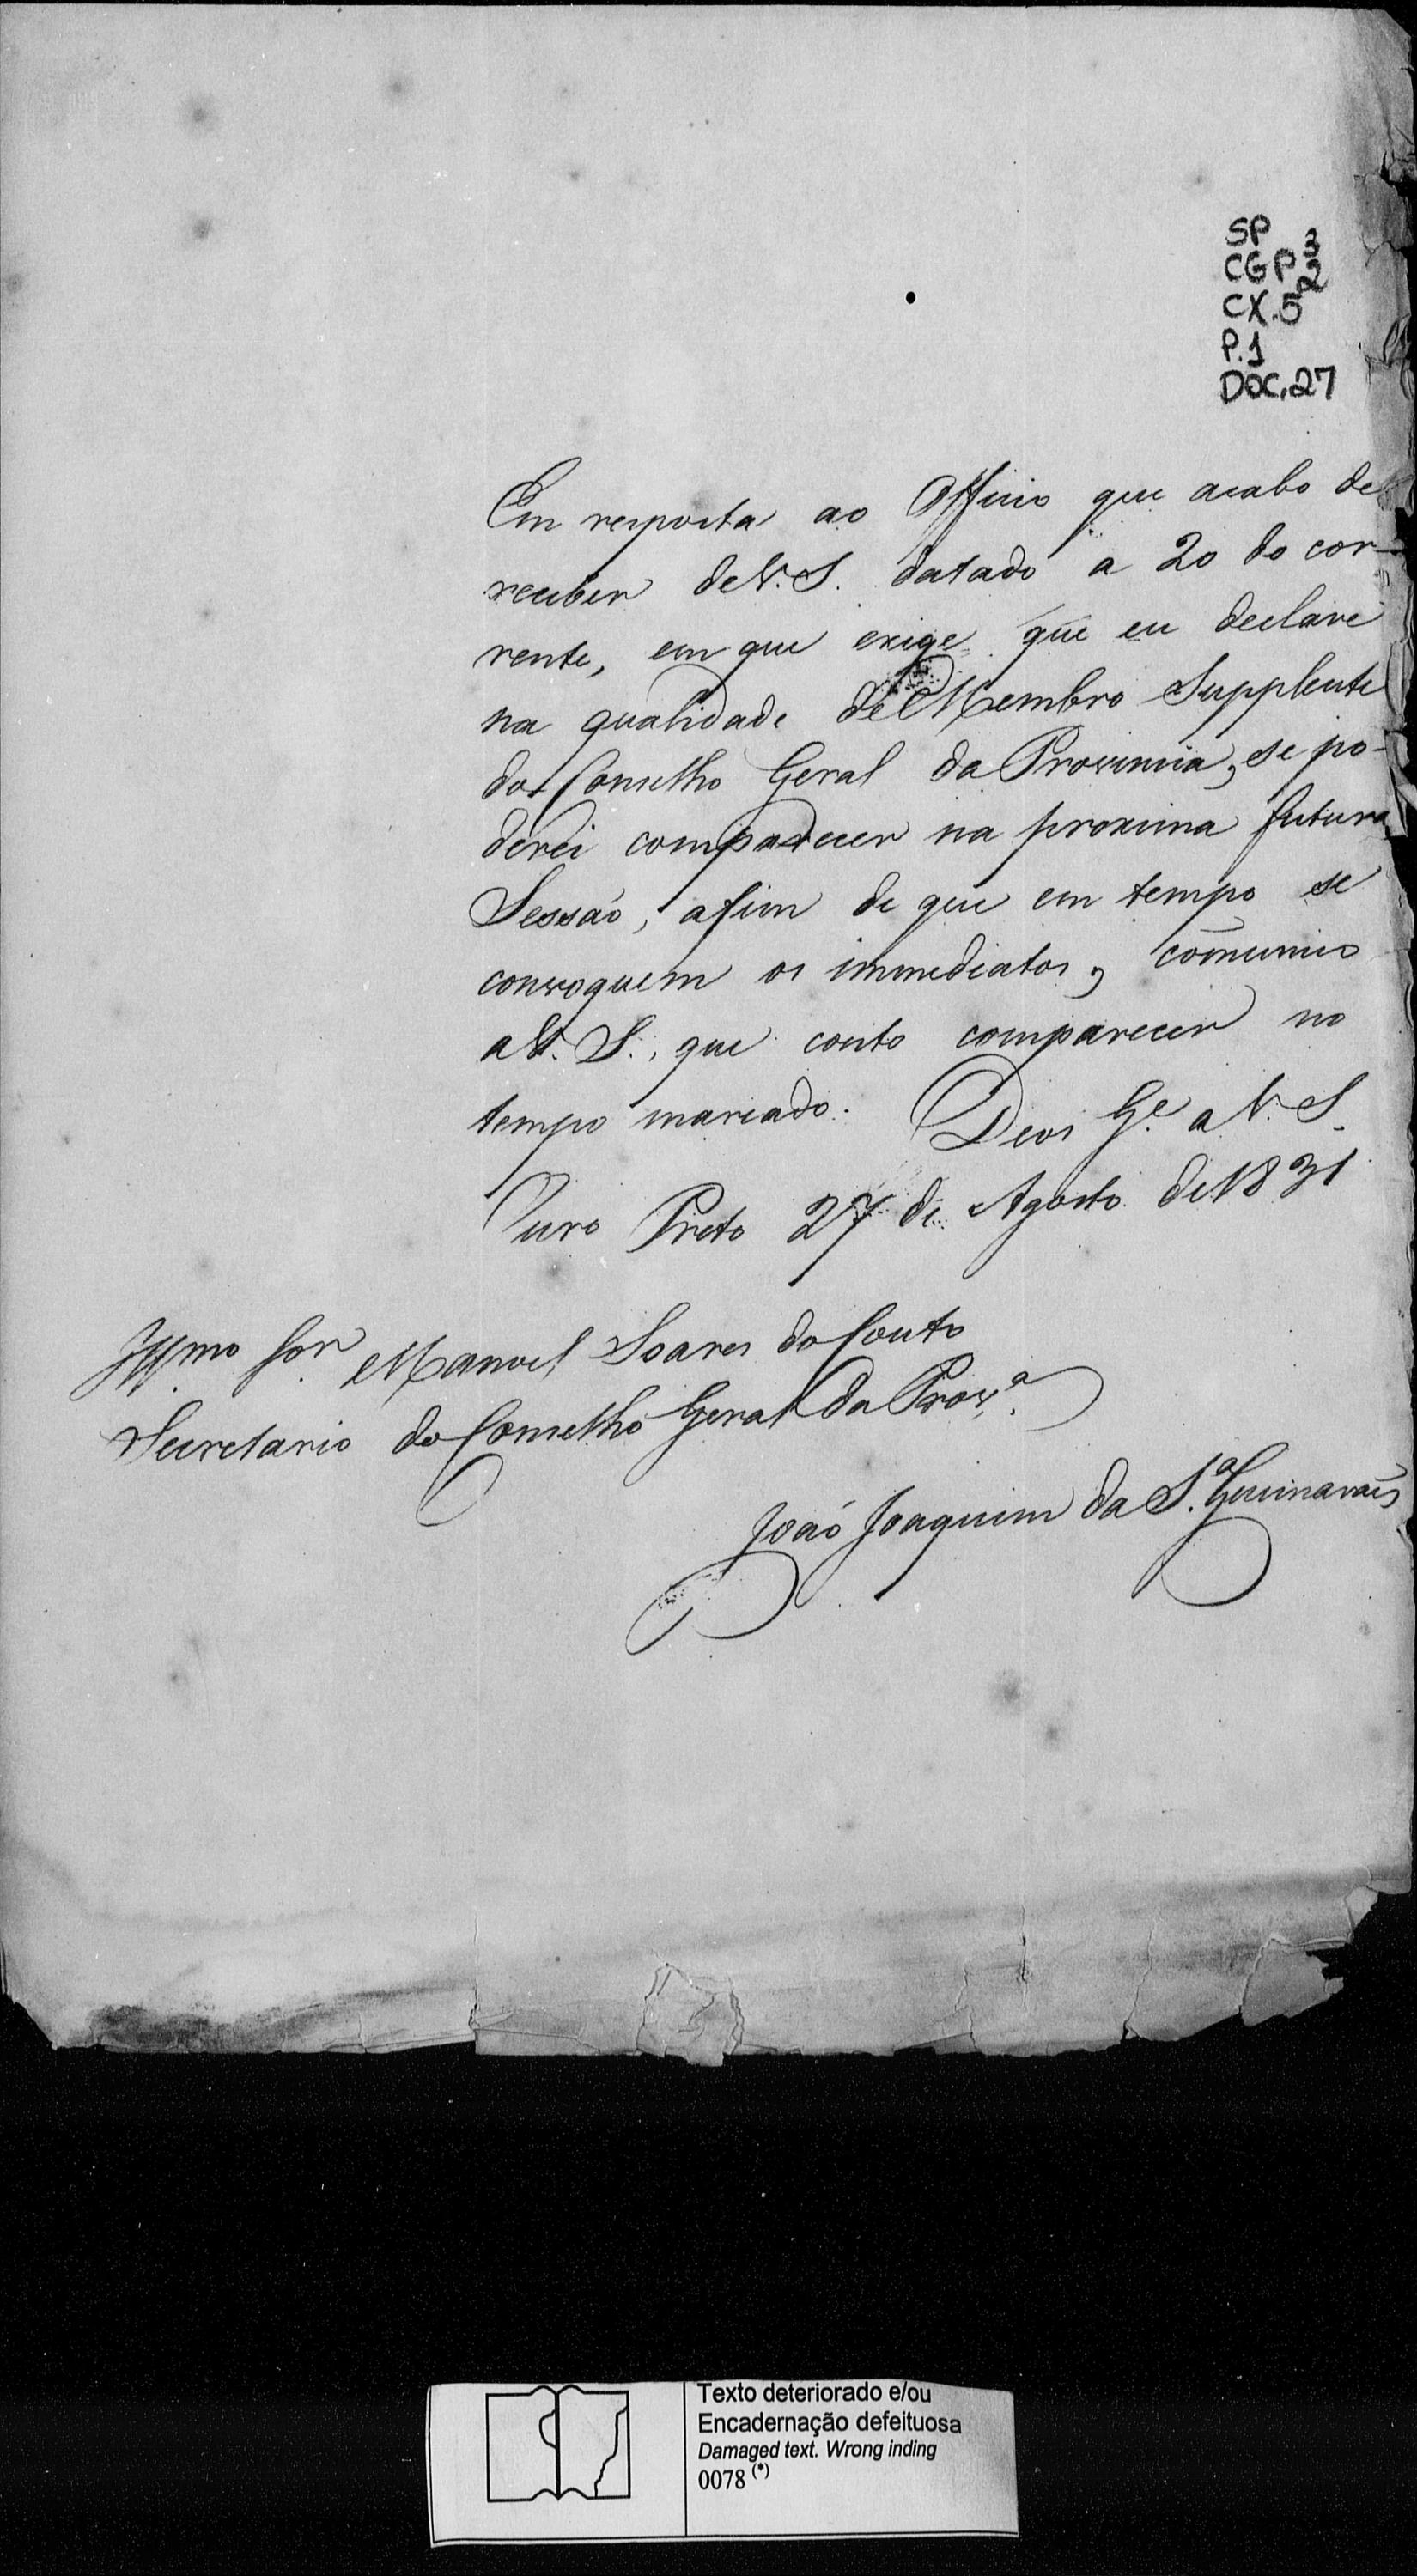 SP
CGP 3
CX.5 2
P.1
DOC.27
Em resposta ao Officio que acabo de
receber de V. S. datado a 20 do cor-
rente, em que exige que eu declare
na qualidade de Membro Supplente
do Conselho Geral da Provincia, se po-
derei comparecer na proxima futura
Sessaó, afim de que em tempo se
convoquem os immediatos, cōmunico
a V. S., que conto comparecer no
tempo marcado. Deos G.e a V. S.
Ouro Preto 27 de Agosto de 1831
Illmo Sor. Manoel Soares do Couto
Secretario do Conselho Geral da Prov.a
Joaó Joaquim da S.a Guimaraēs
Texto deteriorado e/ou
Encadernação defeituosa
Damaged text. Wrong inding
0078 (*)